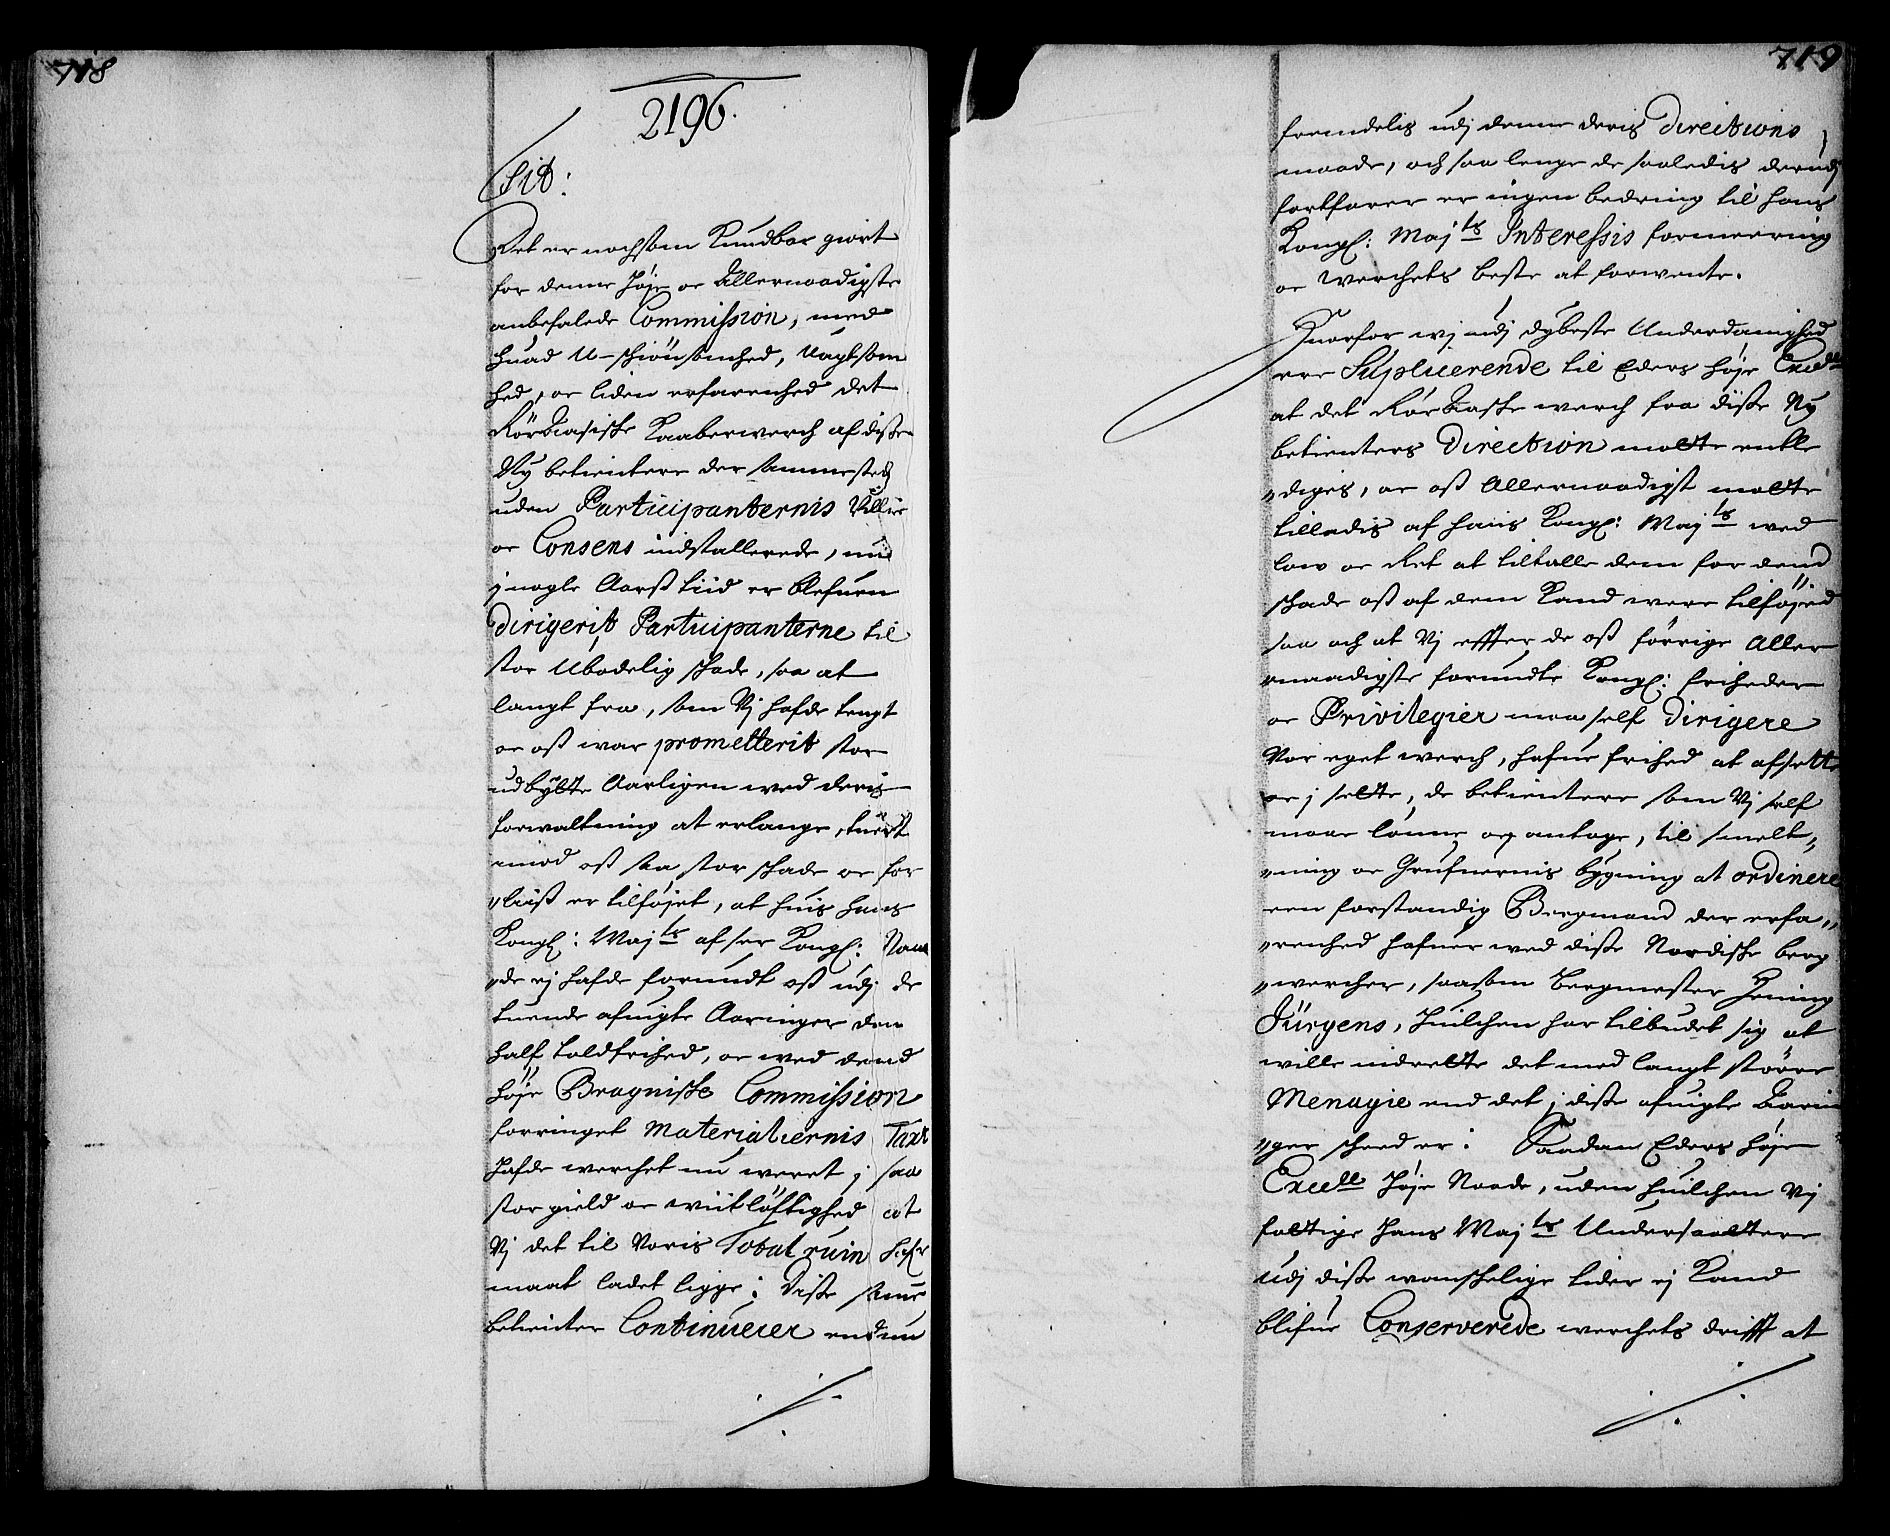 718
2196.
Lit:
Det er nochsom Kundbar giort
for denne høje oc Allernaadigste
anbefalede Commission, med
huad U-schiönsomhed, Uagtsom
hed, oc liden erfarenhed det
Rörraasische Kaaberwerch af disse
Ny betientere der sammesteds
uden Participanternis Villie
oc Consens indstallerede, nu
j nogle Aars tiid er blefuen
dirigerit Participanterne til
stor Ubodelig schade, saa at
langt fra, som Vj hafde tengt
oc oss war prometterit stor
udbytte Aarligen med deris
forwaltning at erlange, tuert
imod oss saa stor schade oc for
„liis er tilföjet, at huis hans
Kongl: Maj.ts af sær Kongl: Naa
„de ej hafde forundt oss udj de
tuende afuigte Aaringer den
half toldfrihed, oc wed dend
höje Bragnische Commission
forringet Materialiernis Taxt
hafde werchet nu weret j saa
stor gield oc wiitlöftighed at
Vj det til Voris Total ruin hafr
maat ladet ligge; Disse samme
betienter Continuerer endnu
719
fremdelis udj denne deris Directions
maade, och saa lenge de saaledis derudj
fortfarer er ingen bedring til hans
Kongl: Maj.ts Interessis formeering
oc werchets beste at forwente.
Huorfor wj udj dybeste Underdanighed
ere Supluerende til Eders höje Excell
at det Rörraaske werch fra disse Ny
betienters Direction motte entle
„diges, oc oss Allernaadigst motte
tilladis af hans Kongl: Maj.ts wed
low oc Ret at tiltalle dem for dend
schade oss af dem Kand were tilföjed
saa och at Vj effter de oss förrige Aller
„naadigste forundte Kongl: friheder
oc Privilegier maa self dirigere
Vor eget werch, hafue frihed at afsette
oc j sette, de betientere som Vj self
maa lönne og antage, til smelt„
„ning oc Grufuernis bygning at ordinere
een forstandig Bergmand der erfa„
„renhed hafuer wed disse Nordische berg
„wercher, saasom bergmester Hening
Jürgens, huilchen har tilbudet sig at
wille indrette det med langt större
Menagie end det j disse afuigte Aarin
„ger scheed er; Saadan Eders höje
Excell höje Naade, uden huilchen Vj
fattige hans Maj.ts Undersaattere
udj disse wanschelige tider ej Kand
blifue Conserverede werchets drifft at